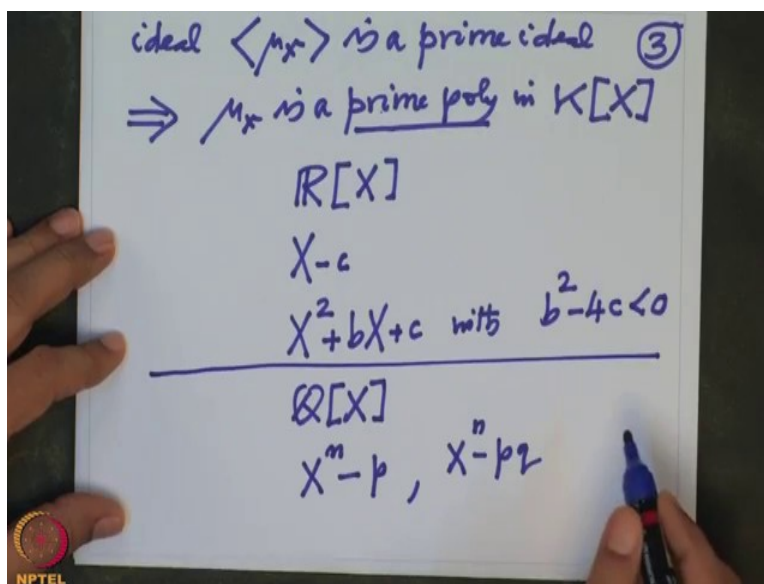 ideal <μx> is a prime ideal ③
⇒ μx is a prime poly in K[X]
ℝ[X]
X-c
X²+bX+c with b²-4c<0
ℚ[X]
Xⁿ-p, Xⁿ-pq
NPTEL